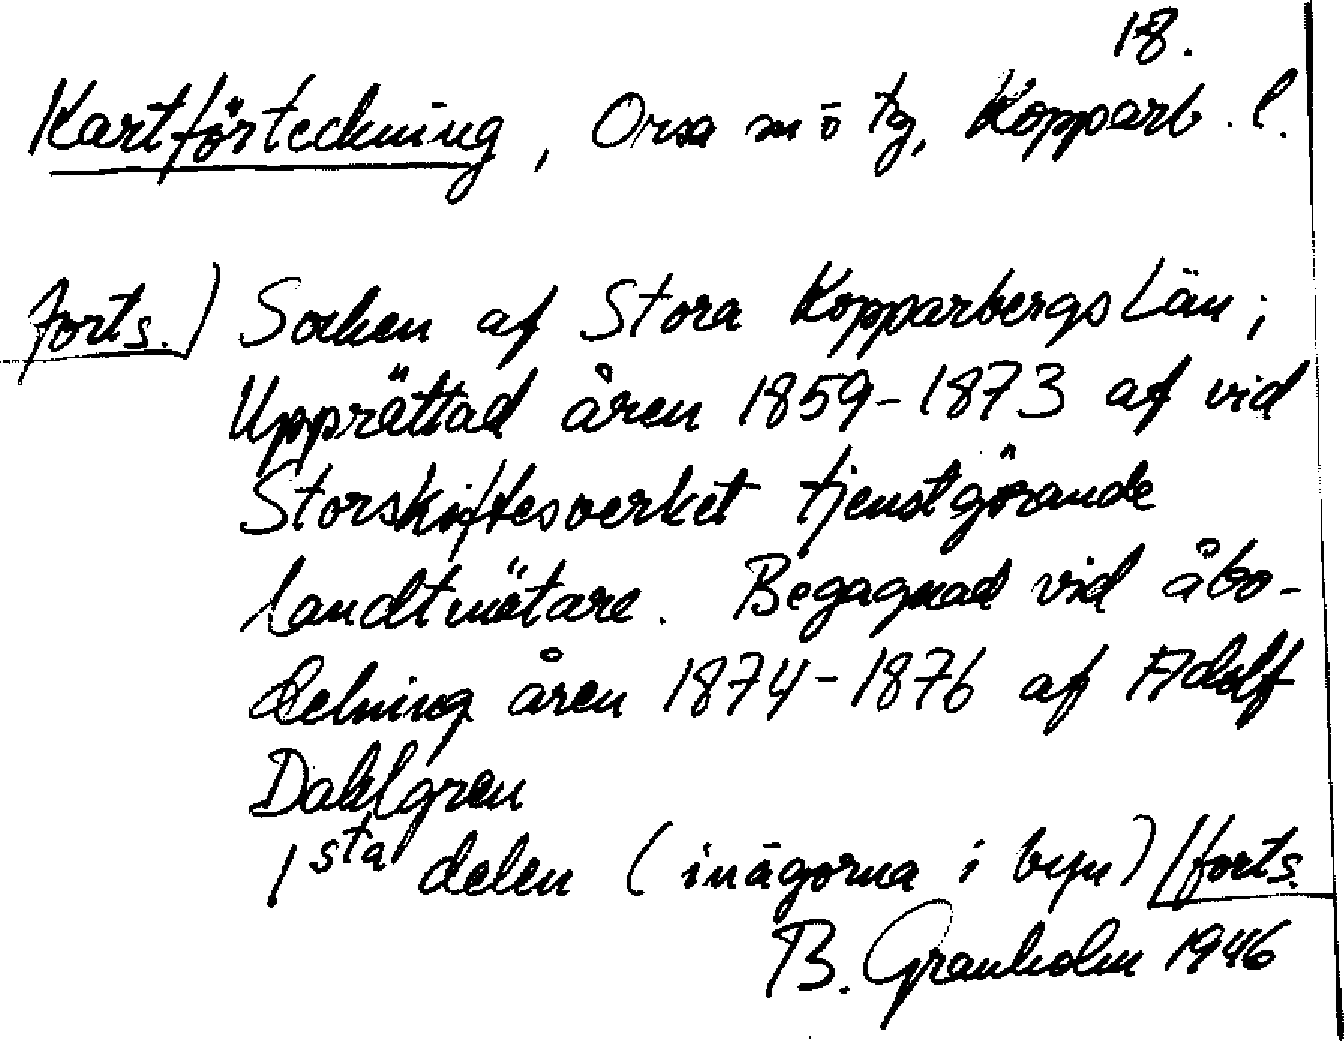 18.
Kartförteckning, Orsa m ö tg, Kopparb. l.
forts.) Socken af Stora Kopparbergs Län;
Upprättad åren 1859-1873 af vid
Storskiftesverket tjenstgörande
landtmätare. Begagnad vid åbo-
delning åren 1874-1876 af Adolf
Dahlgren
1sta delen (inägorna i byn) /forts.
B. Granholm 1946